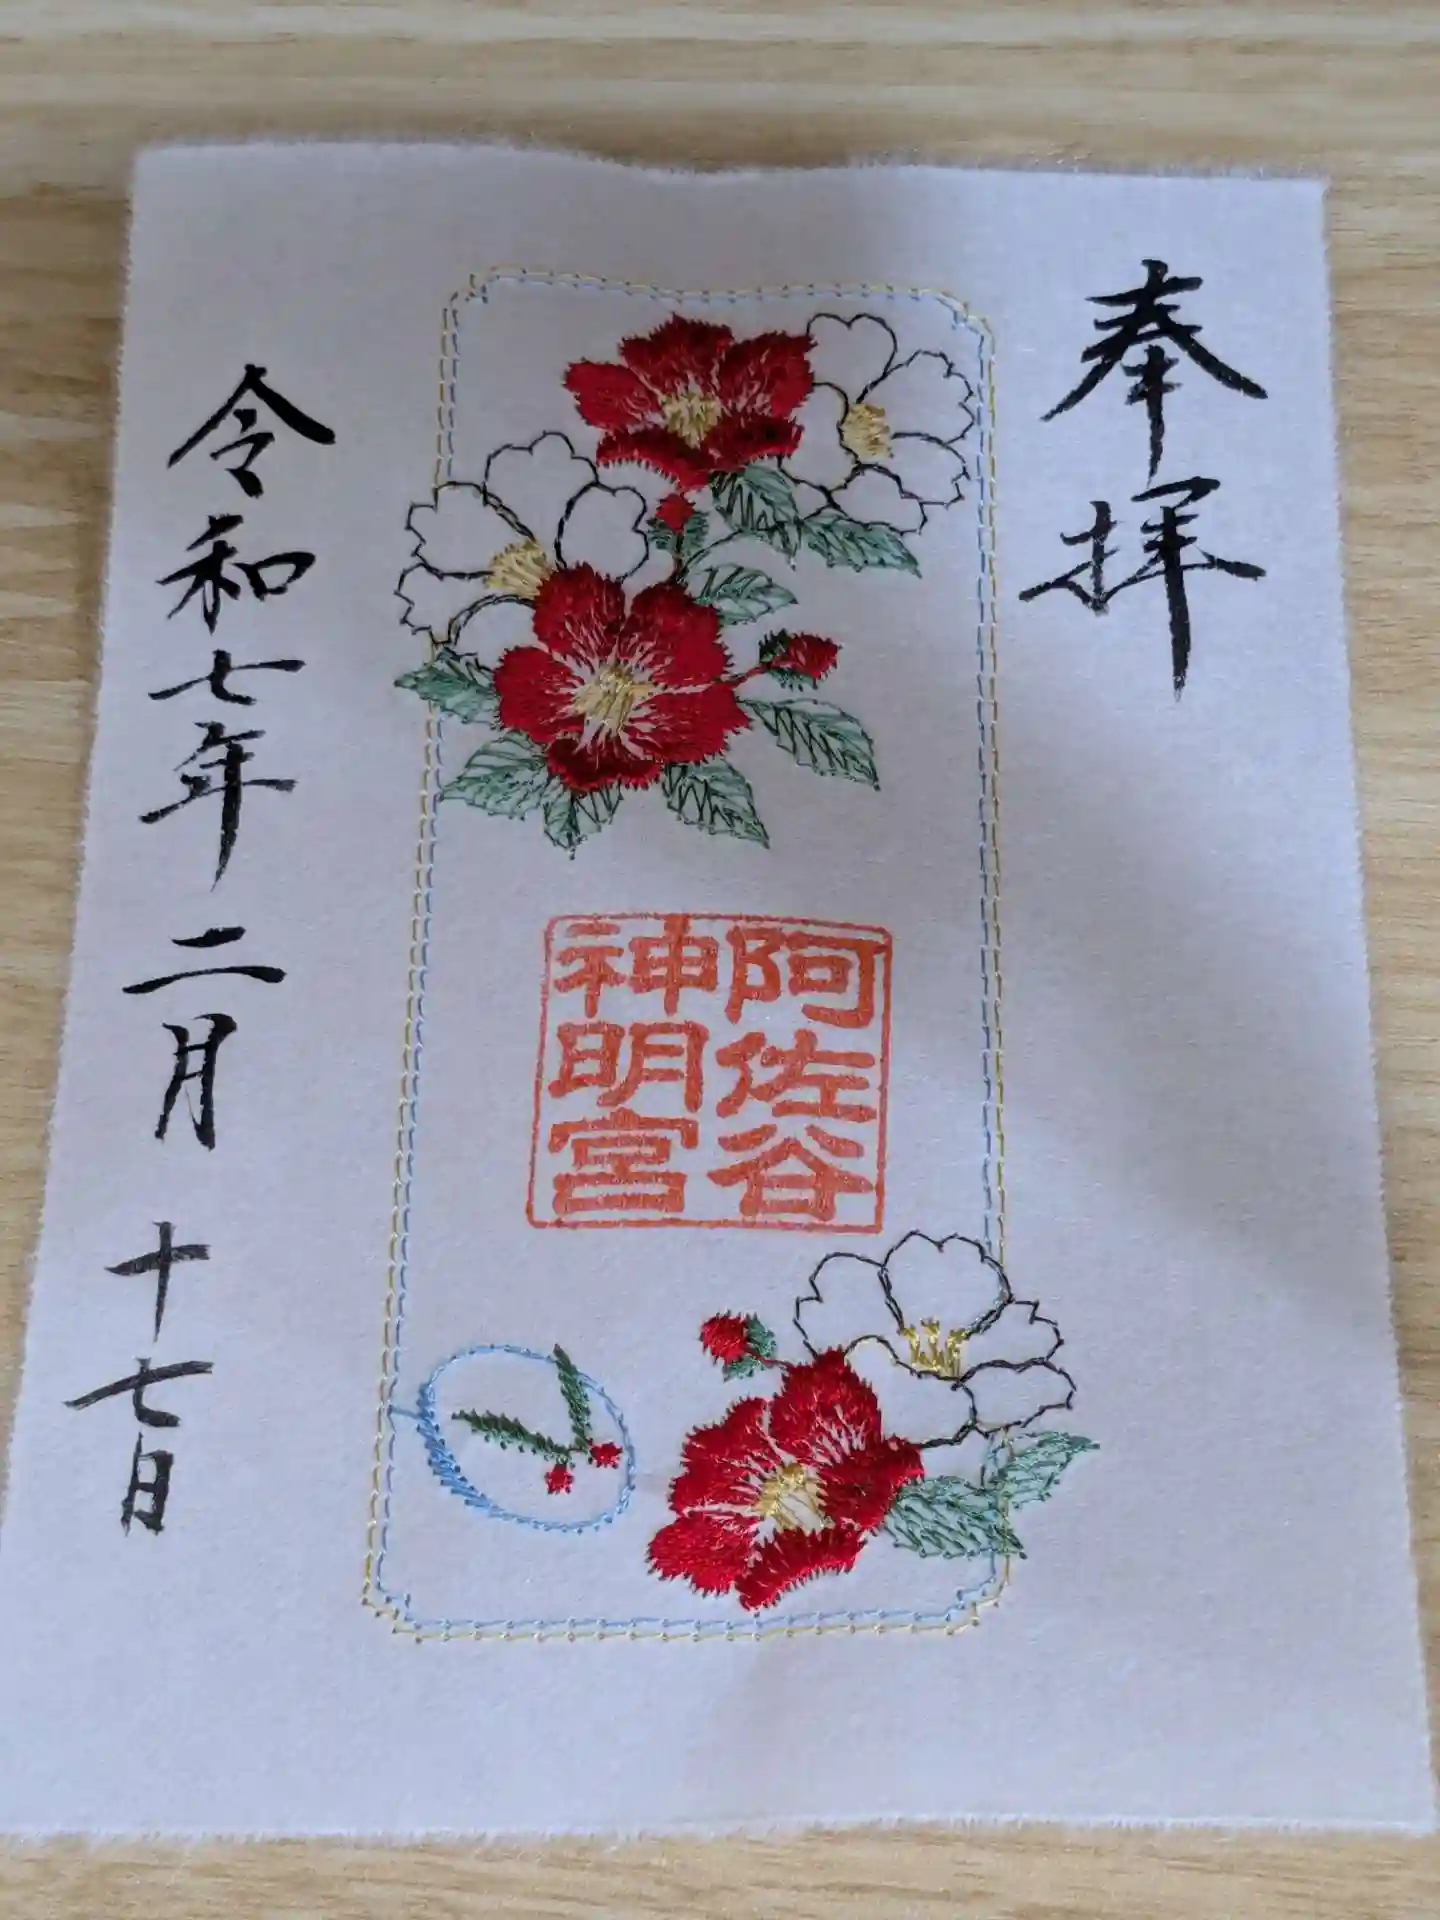 奉拝
阿佐谷
神明宮
令和七年二月十七日